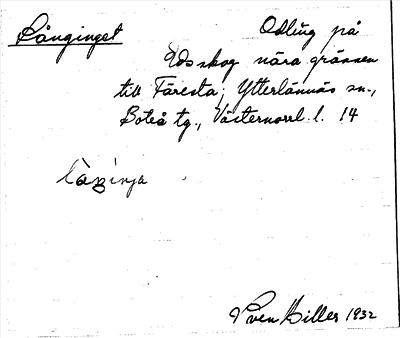 Långinget
Odling på
Edsskog nära gränsen
till Färesta; Ytterlännäs sn.,
Boteå tg., Västernorrl. l. 14
Sven Hiller 1932